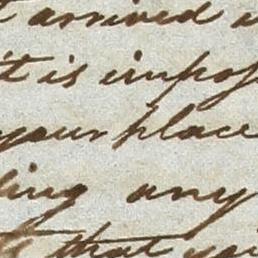 arrived
it is impos
your place
ling any
that you